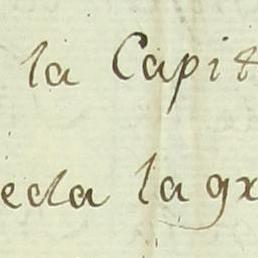 la Capit
eda la gr